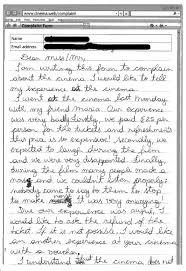 www.cinema.web/complaint
Complaint Form
Name
Email address
Dear Mrs/Mr,
I am writing this form to complain
about the cinema. I would like to tell
my experience at the cinema.
I went at the cinema last Monday
with my friend Maria. Our experience
was very bad. Firstly, we paid £25 per
person for the tickets and refreshments
this price is so expensive! Secondly, we
expected to laugh during the film
and we were very disappointed. Finally,
during the film many people made a
mass and we couldn't listen properly:
nobody came to say to them to stop
to make It was very annoying!
Due our experience was awful, I
would like to ask the refund of the
ticket. If it is not possible, I would like
an another experience at your cinema
with a voucher.
I understand that the cinema does not